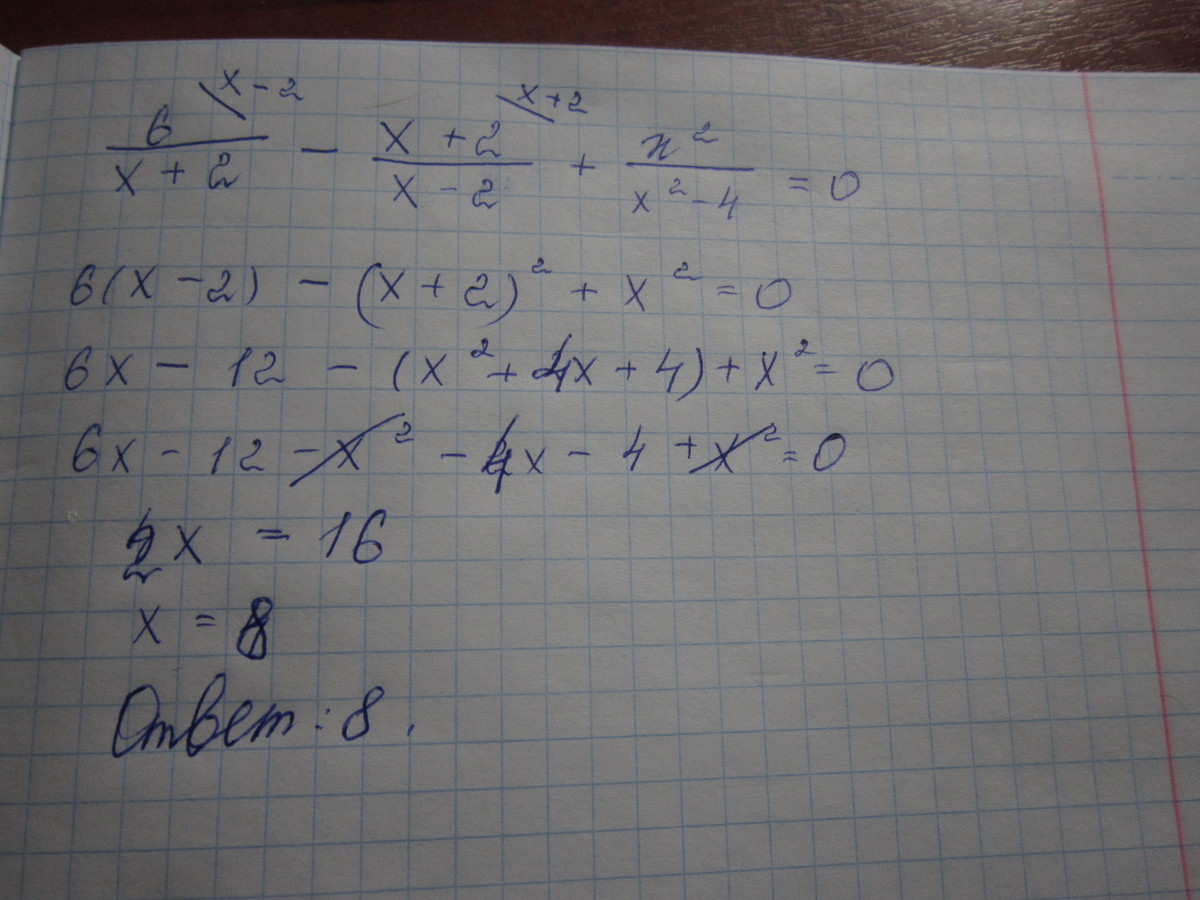 6/(x + 2) \ x - 2 − (x + 2)/(x - 2) \ x + 2 + x²/(x² - 4) = 0
6(x - 2) - (x + 2)² + x² = 0
6x - 12 - (x² + 4x + 4) + x² = 0
6x - 12 - x² - 4x - 4 + x² = 0
2x = 16
x = 8
Ответ: 8.